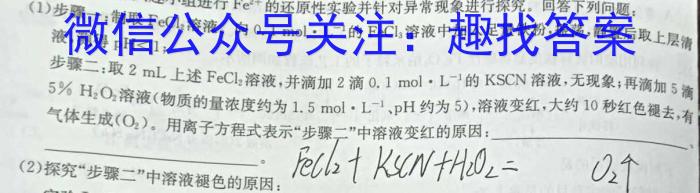 小组进行 Fe²⁺ 的还原性实验并针对异常现象进行探究。回答下列问题:
(1)步骤一:制取 FeCl₂ 溶液
微信公众号关注:趣找答案
后取上层清
步骤二:取 2 mL 上述 FeCl₂ 溶液,并滴加 2 滴 0.1 mol·L⁻¹ 的 KSCN 溶液,无现象;再滴加 5 滴
5% H₂O₂ 溶液(物质的量浓度约为 1.5 mol·L⁻¹、pH 约为 5),溶液变红,大约 10 秒红色褪去,有
气体生成(O₂)。用离子方程式表示“步骤二”中溶液变红的原因:
FeCl₂ + KSCN + H₂O₂ = O₂↑
(2)探究“步骤二”中溶液褪色的原因: